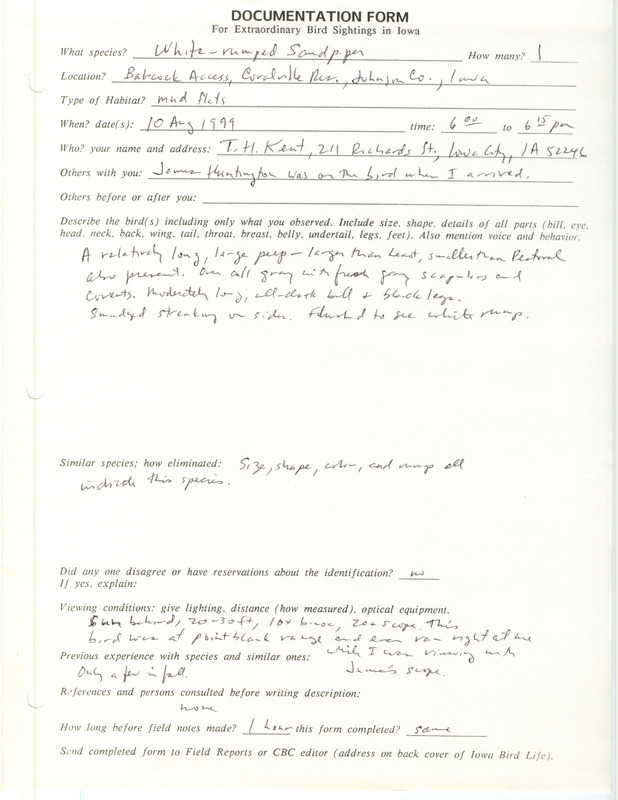 DOCUMENTATION FORM
For Extraordinary Bird Sightings in Iowa
What species? White-rumped Sandpiper How many? 1
Location? Babcock Access, Coralville Res., Johnson Co., Iowa
Type of Habitat? mud flats
When? date(s): 10 Aug 1999 time: 6 00 to 6 15 pm
Who? your name and address: T.H. Kent, 211 Richards St, Iowa City, IA 52246
Others with you: James Huntington was on the bird when I arrived.
Others before or after you:
Describe the bird(s) including only what you observed. Include size, shape, details of all parts (bill, eye,
head, neck, back, wing, tail, throat, breast, belly, undertail, legs, feet). Also mention voice and behavior.
A relatively long, large peep - larger than Least, smaller than Pectoral
also present. Overall gray with fresh gray scapulars and
coverts. Moderately long, all-dark bill + black legs.
Smudged streaking on sides. Flushed to see white rump.
Similar species; how eliminated: Size, shape, color, and rump all
indicate this species.
Did any one disagree or have reservations about the identification? no
If yes, explain:
Viewing conditions: give lighting, distance (how measured), optical equipment.
Sun behind, 20-30 ft, 10x binoc, 20x scope. This
bird was at point blank range and even ran right at me
while I was viewing with
Previous experience with species and similar ones:
Only a few in fall. James's scope.
References and persons consulted before writing description:
none
How long before field notes made? 1 hour this form completed? same
Send completed form to Field Reports or CBC editor (address on back cover of Iowa Bird Life).